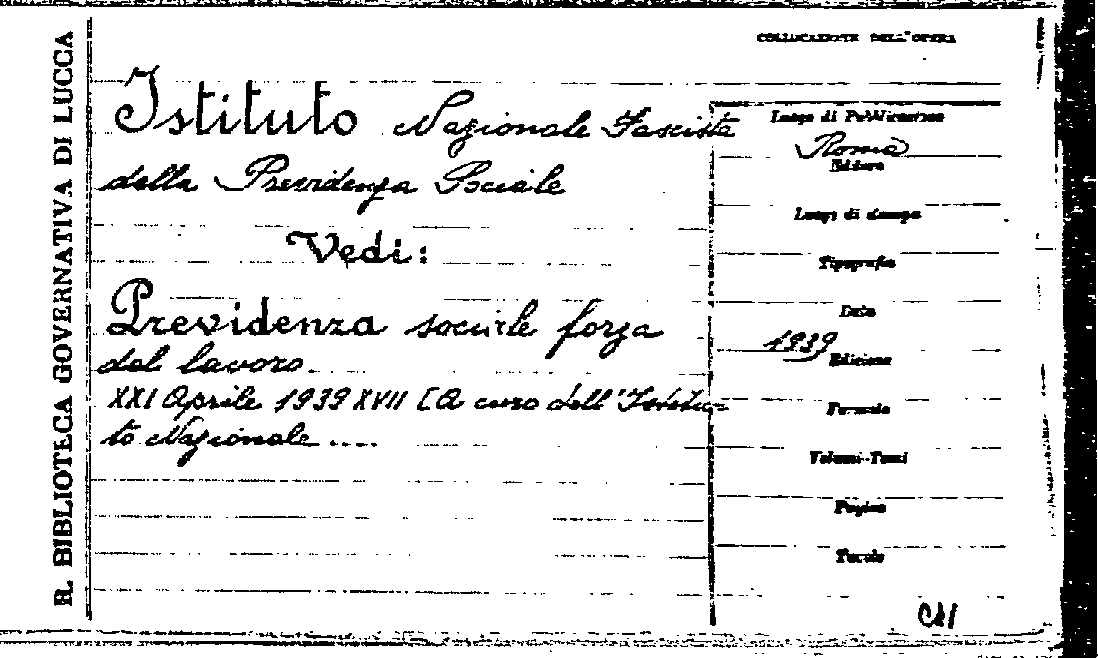 R. BIBLIOTECA GOVERNATIVA DI LUCCA
COLLOCAZIONE DELL'OPERA
Istituto Nazionale Fascista
della Previdenza Sociale
Vedi:
Previdenza sociale forza
del lavoro.
XXI Aprile 1939 XVII [A cura dell'Istitu-
to Nazionale ....
Luogo di Pubblicazione
Roma
Editore
Luogo di stampa
Tipografia
Data
1939
Edizione
Formato
Volumi-Tomi
Pagine
Tavole